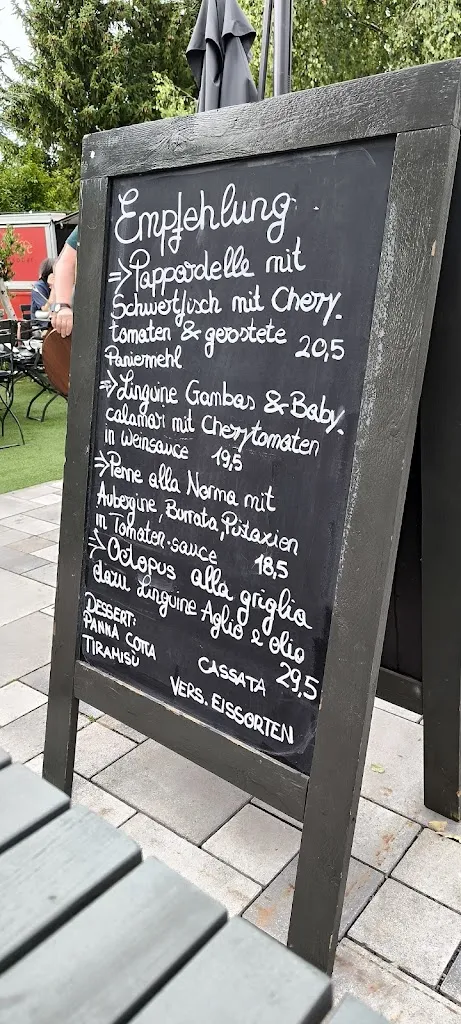 Empfehlung
⇒ Pappardelle mit
Schwertfisch mit Cherry-
tomaten & geröstete
Paniermehl 20,5
⇒ Linguine Gambas & Baby-
calamari mit Cherrytomaten
in Weinsauce 19,5
⇒ Penne alla Norma mit
Aubergine, Burrata, Pistazien
in Tomaten-sauce 18,5
⇒ Octopus alla griglia
dazu Linguine Aglio e olio
29,5
DESSERT:
PANNA COTTA CASSATA
TIRAMISÙ VERS. EISSORTEN